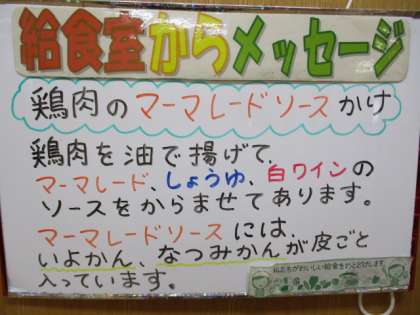 給食室からメッセージ
鶏肉のマーマレードソースかけ
鶏肉を油で揚げて、
マーマレード、しょうゆ、白ワインの
ソースをからませてあります。
マーマレードソースには、
いよかん、なつみかんが皮ごと
入っています。
私たちがおいしい給食をおとどけします